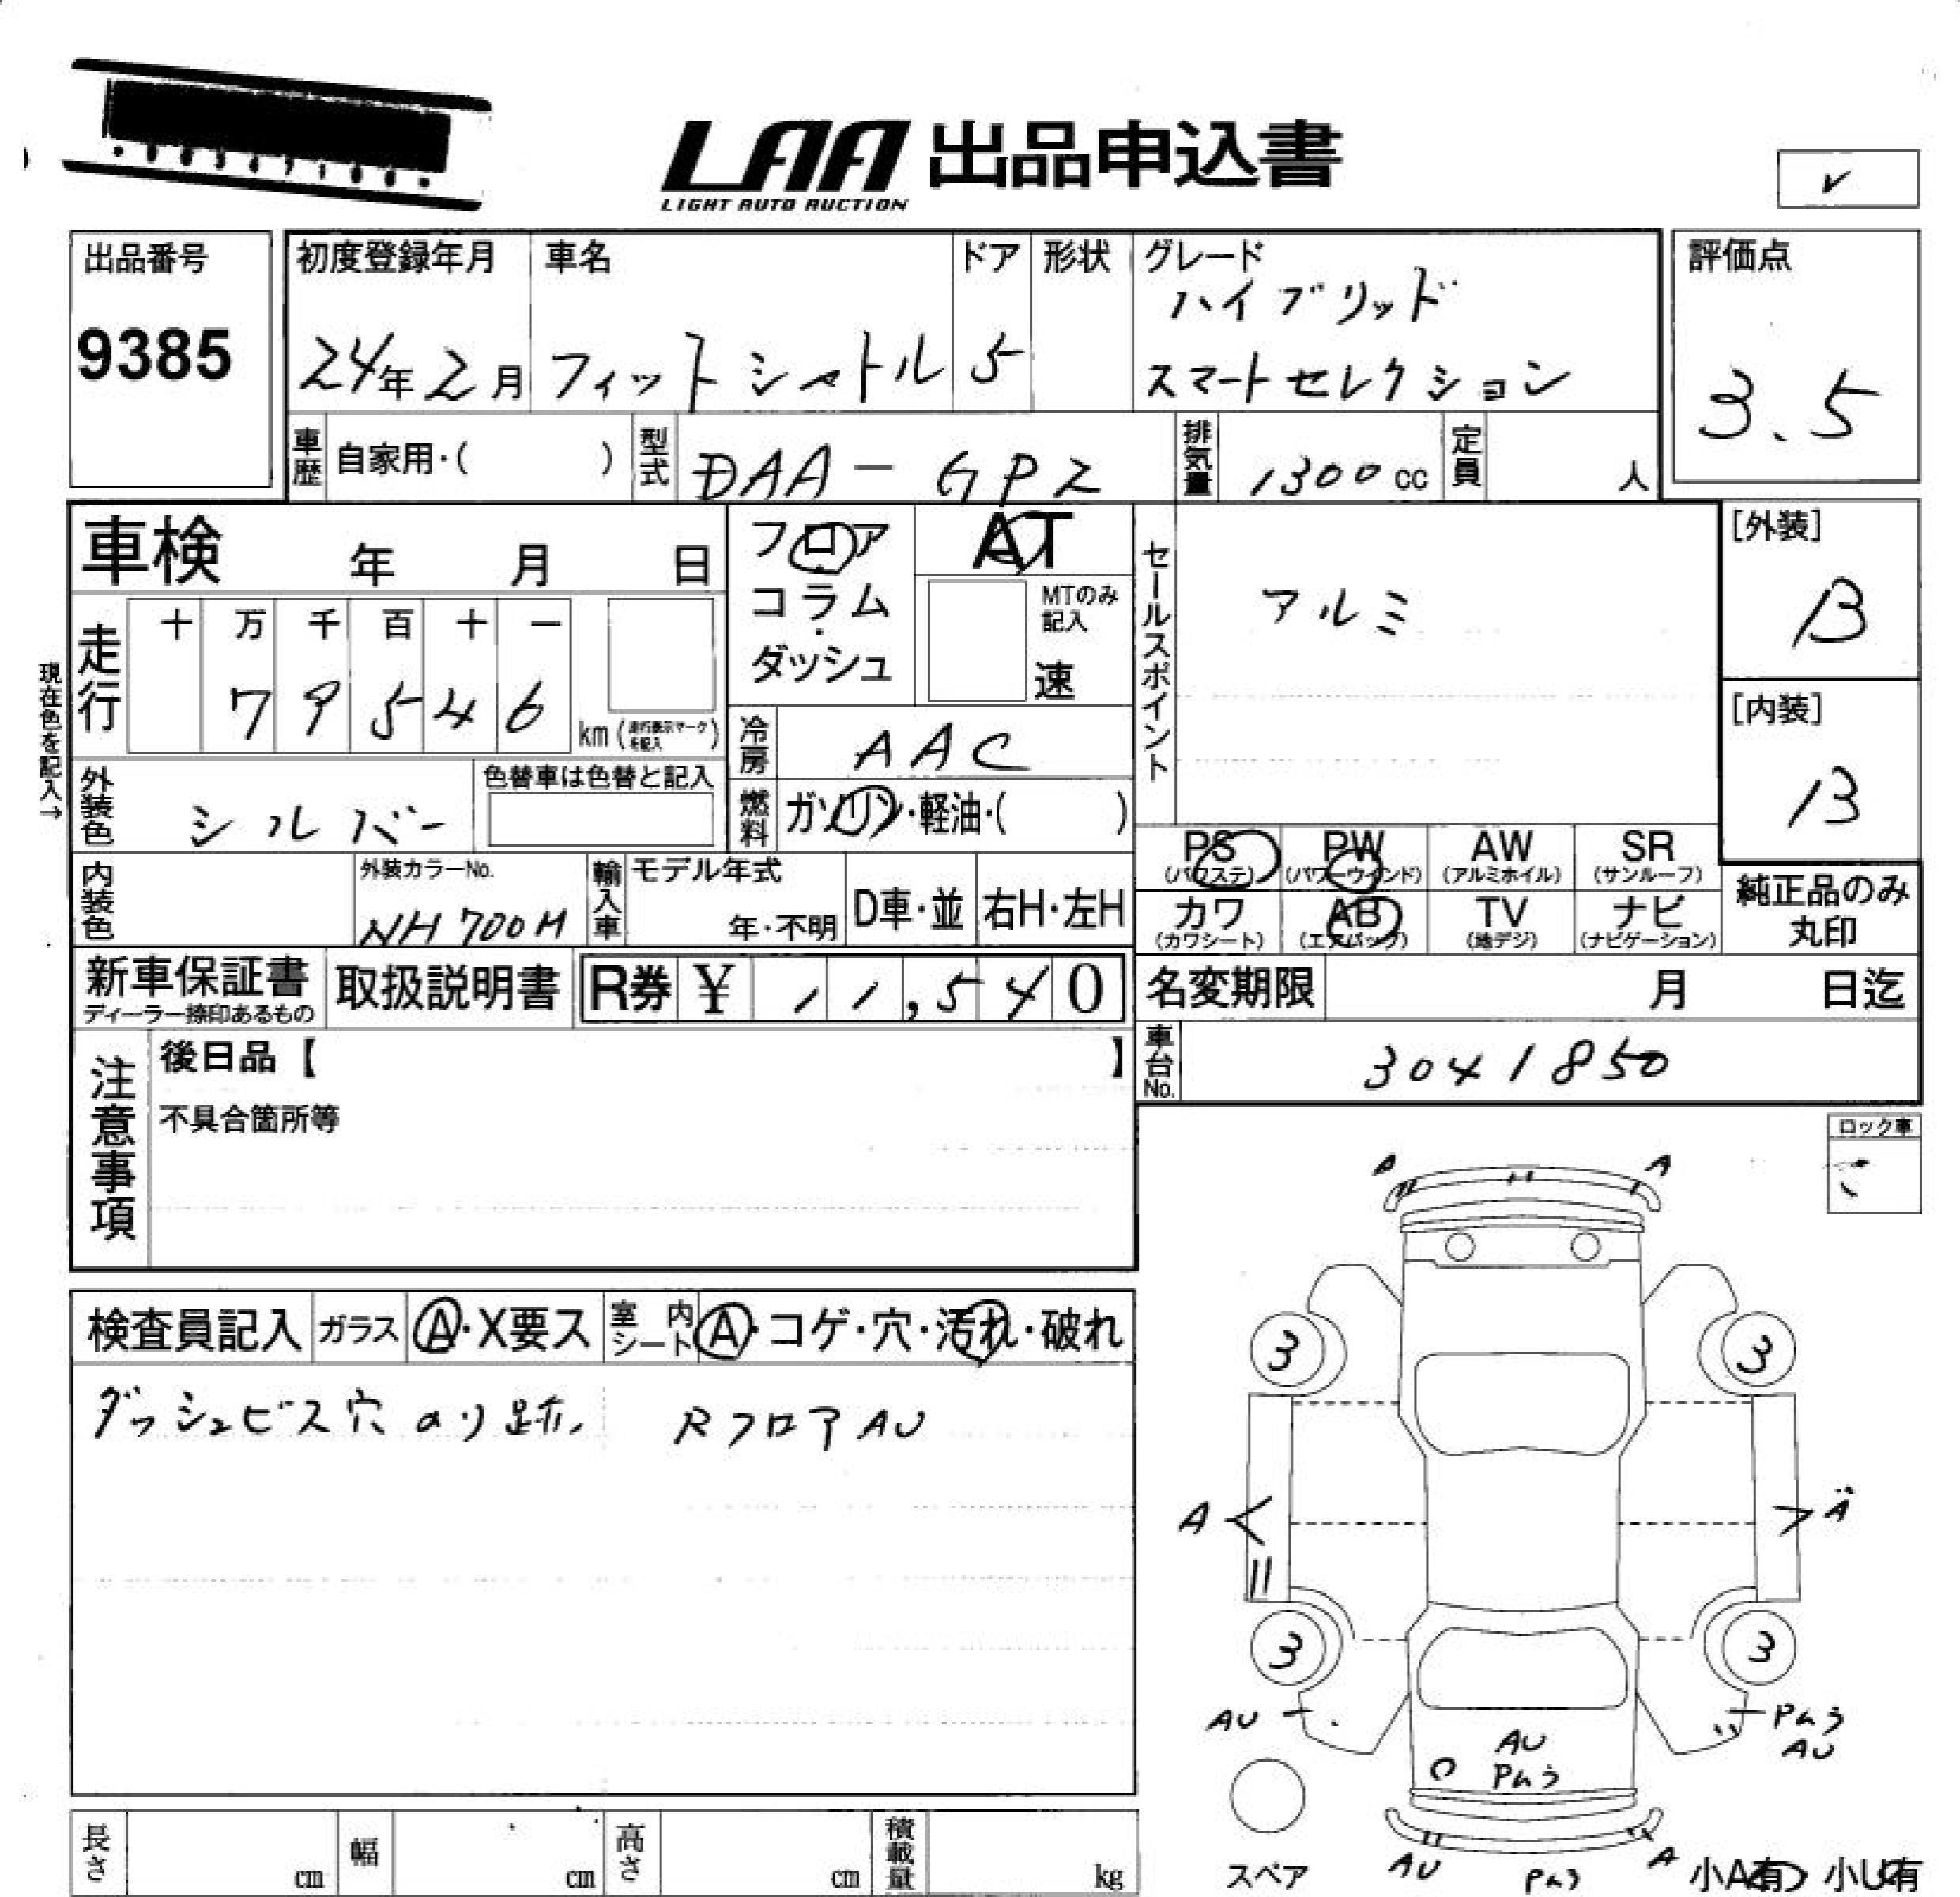 LAA 出品申込書
LIGHT AUTO AUCTION
出品番号
9385
初度登録年月
24年2月
車名
フィットシャトル
ドア
5
形状
グレード
ハイブリッド
スマートセレクション
評価点
3.5
車歴
自家用・( )
型式
DAA-GP2
排気量
1300cc
定員
人
車検 年 月 日
フロア
コラム
・
ダッシュ
AT
MTのみ
記入
速
セールスポイント
アルミ
[外装]
B
[内装]
B
現在色を記入→
走行
十 万 千 百 十 一
7 9 5 4 6
km(走行表示マークを記入)
冷房
AAC
外装色
シルバー
色替車は色替と記入
燃料
ガソリン・軽油・( )
PS
(パワステ)
PW
(パワーウインド)
AW
(アルミホイル)
SR
(サンルーフ)
内装色
外装カラーNo.
NH700M
輸入車
モデル年式
年・不明
D車・並
右H・左H
カワ
(カワシート)
AB
(エアバック)
TV
(地デジ)
ナビ
(ナビゲーション)
純正品のみ
丸印
新車保証書
ディーラー捺印あるもの
取扱説明書
R券 ¥ 11,540
名変期限 月 日迄
車台No.
3041850
注意事項
後日品【 】
不具合箇所等
ロック車
検査員記入
ガラス
A・X要ス
室内
シート
A・コゲ・穴・汚れ・破れ
ダッシュビス穴 のり跡、 RフロアAU
A
A
3
3
A
A
3
3
AU
Pんう
AU
AU
Pんう
スペア
AU
Pんう
A
小A有 小U有
長さ
cm
幅
cm
高さ
cm
積載量
kg